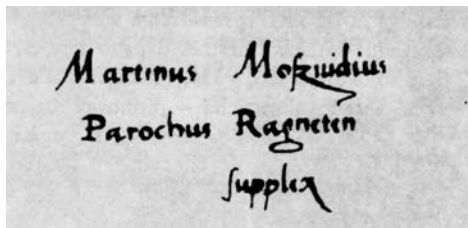 Martinus Moſzuidius
Parochus Ragneten
ſupplex